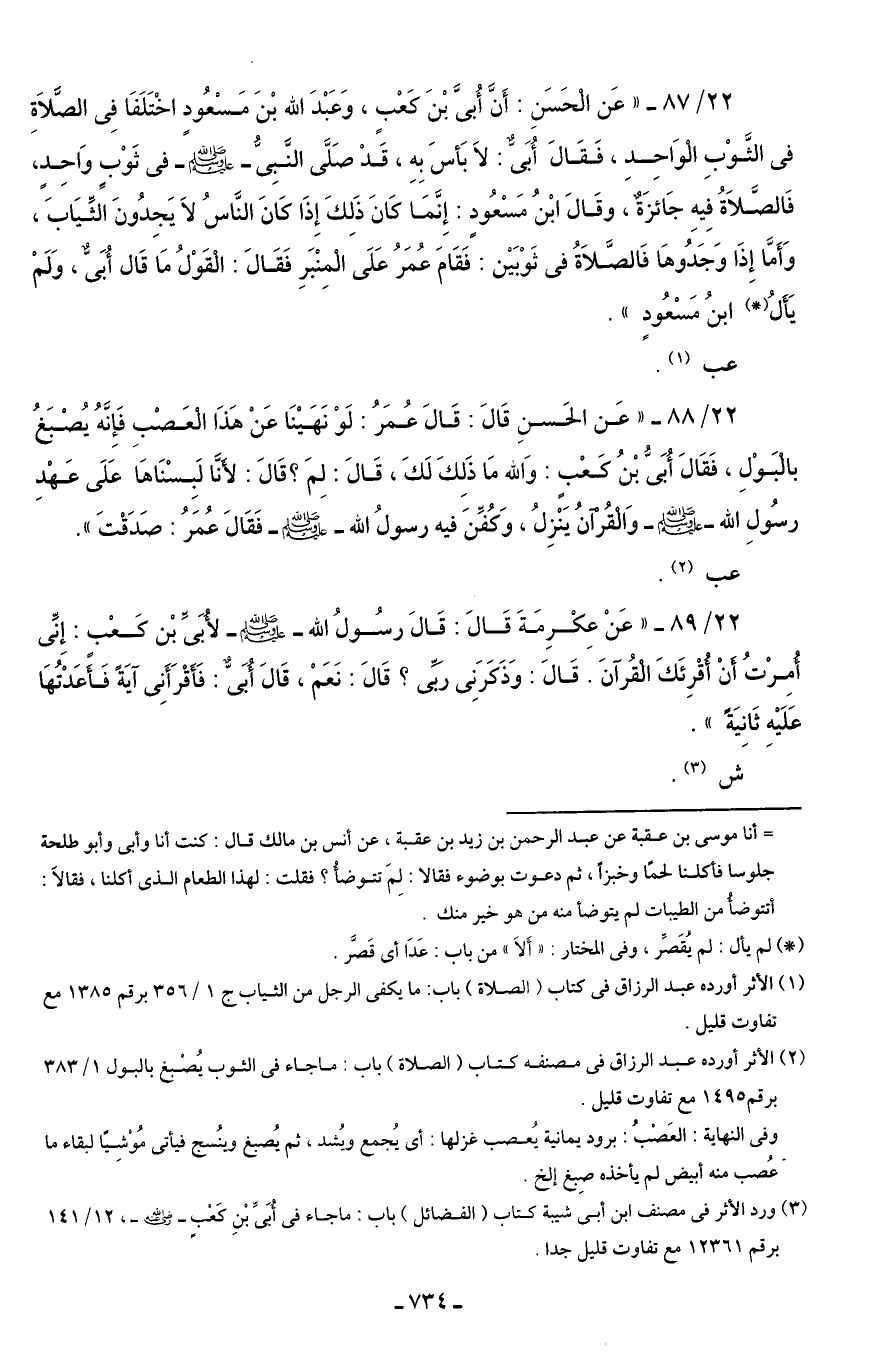 ٨٧/٢٢ ـ « عَن الْحَسَنِ : أَنَّ أُبىَّ بْنَ كَعْبٍ ، وَعَبْدَ الله بْنَ مَسْعُودٍ اخْتَلَفَا فِى الصَّلاَةِ
فِى الثَّوْبِ الْوَاحِدِ ، فَقَالَ أُبَىٌّ : لاَ بَأسَ بِهِ ، قَدْ صَلَّى النَّبِىُّ ـ ﷺ ـ فى ثَوْبٍ واَحِدٍ،
فَالصَّلاَةُ فِيهِ جَائزَةٌ ، وقَالَ ابْنُ مَسْعُودٍ : إِنَّمَا كَانَ ذَلِكَ إِذَا كَانَ النَّاسُ لاَ يَجِدُونَ الثِّيَابَ ،
وَأَمَّا إِذَا وَجَدُوهَا فَالصَّلاَةُ فى ثَوْبَيْن : فَقَامَ عُمَرُ عَلَى الْمِنْبَرِ فَقَالَ : الْقَوْلُ مَا قَال أُبَىٌّ ، وَلَمْ
يَأَلُ(*) ابنُ مَسْعُودٍ » .
عب (١) .
٨٨/٢٢ ـ « عَن الحَسنِ قَالَ : قَالَ عُمَرُ : لَوْ نَهَيْنَا عَنْ هَذَا الْعَصْبِ فَإِنَّهُ يُصْبَغُ
بالْبَوْلِ ، فَقَالَ أُبَىُّ بْنُ كَعْبٍ : وَالله مَا ذَلِكَ لَكَ ، قَالَ : لِمَ ؟ قَالَ : لأَنَّا لَبِسْنَاهَا عَلَى عَهْدِ
رسُولِ الله ـ ﷺ ـ وَالْقُرْآنُ يَنْزِلُ ، وَكُفِّنَ فيه رسولُ الله ـ ﷺ ـ فَقَالَ عُمَرُ : صَدَقْتَ ».
عب (٢) .
٨٩/٢٢ ـ « عَنْ عِكْرِمَةَ قَالَ : قَالَ رسُولُ الله ـ ﷺ ـ لأُبَىِّ بْنِ كَعْبٍ : إِنِّى
أُمِرْتُ أَنْ أُقْرِئَكَ الْقُرآنَ . قَالَ : وَذَكَرَنِى رَبِّى ؟ قَالَ : نَعَمْ ، قَالَ أُبَىٌّ : فَأَقْرَأَنِى آيَةً فَأَعَدْتُهَا
عَلَيْهِ ثَانِيَةً » .
ش (٣) .
= أنا موسى بن عقبة عن عبد الرحمن بن زيد بن عقبة ، عن أنس بن مالك قال : كنت أنا وأبى وأبو طلحة
جلوسا فأكلنا لحمًا وخبزاً ، ثم دعوت بوضوء فقالا : لِمَ تتوضأُ ؟ فقلت : لهذا الطعام الذى أكلنا ، فقالاَ :
أتتوضأُ من الطيبات لم يتوضأ منه من هو خير منك .
(*) لم يأل : لم يُقَصِّر ، وفى المختار : « أَلاَ » من باب : عَدَا أى قَصَّر .
(١) الأثر أورده عبد الرزاق فى كتاب ( الصلاة ) باب: ما يكفى الرجل من الثياب ج ١ / ٣٥٦ برقم ١٣٨٥ مع
تفاوت قليل .
(٢) الأثر أورده عبد الرزاق فى مصنفه كتاب ( الصلاة ) باب : ماجاء فى الثوب يُصْبغ بالبول ١/ ٣٨٣
برقم١٤٩٥ مع تفاوت قليل .
وفى النهاية : العَصْبُ : برود يمانية يُعصب غزلها : أى يُجمع ويُشد ، ثم يُصبغ وينُسج فيأتى مُوْشيًا لبقاء ما
عُصب منه أبيض لم يأخذه صِبغ إلخ .
(٣) ورد الأثر فى مصنف ابن أبى شيبة كتاب ( الفضائل ) باب : ماجاء فى أُبَىِّ بْنِ كَعْبٍ ـ رضي الله عنه ـ ، ١٢/ ١٤١
برقم ١٢٣٦١ مع تفاوت قليل جدا .
ـ ٧٣٤ ـ